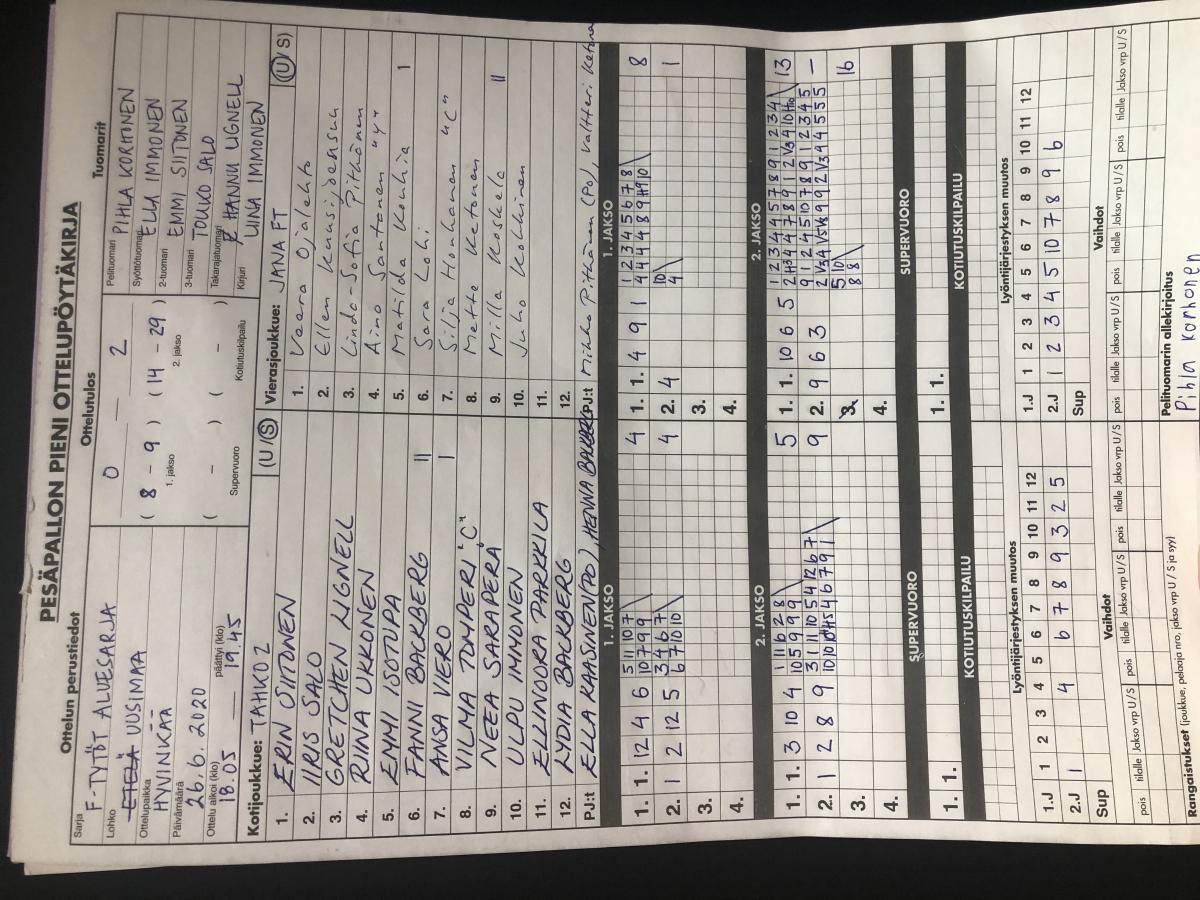 PESÄPALLON PIENI OTTELUPÖYTÄKIRJA
Ottelun perustiedot
Sarja
F-TYTÖT ALUESARJA
Lohko
ETELÄ UUSIMAA
Ottelupaikka
HYVINKÄÄ
Päivämäärä
26.6.2020
Ottelu alkoi (klo)
18.05
päättyi (klo)
19.45
Ottelutulos
0 — 2
( 8 - 9 ) ( 14 - 29 )
1. jakso 2. jakso
( - ) ( - )
Supervuoro Kotiutuskilpailu
Tuomarit
Pelituomari PIHLA KORHONEN
Syöttötuomari ELLA IMMONEN
2-tuomari EMMI SIITONEN
3-tuomari TOUKO SALO
Takarajatuomari HANNU LIGNELL
Kirjuri LIINA IMMONEN
Kotijoukkue: TAHKO 2 (U/S)
1. ERIN SIITONEN
2. IIRIS SALO
3. GRETCHEN LIGNELL
4. RIINA UKKONEN
5. EMMI ISOTUPA
6. FANNI BACKBERG II
7. ANSA VIERO I
8. VILMA TOMPERI "C"
9. NEEA SARAPERÄ
10. ULPU IMMONEN
11. ELLINOORA PARKKILA
12. LYDIA BACKBERG
PJ:t ELLA KAASINEN (PO), HENNA BACKBERG
Vierasjoukkue: JANA FT (U/S)
1. Veera Ojalehto
2. Ellen Kuusijoensuu
3. Linda-Sofia Pitkänen
4. Aino Santanen "Y"
5. Matilda Kouhia I
6. Sara Lohi
7. Silja Honkanen "C"
8. Mette Ketonen
9. Milla Koskela II
10. Juho Kokkinen
11.
12.
PJ:t Mihko Pitkänen (PO), Valtteri Ketonen
1. JAKSO
1. 1. 12 4 6 4
5 11 10 7
10 7 9 9
2. 1 2 12 5 4
3 4 6 7
6 7 10 10
3.
4.
1. JAKSO
1. 1. 4 9 1 8
1 2 3 4 5 6 7 8
2. 4 1
10
4
3.
4.
2. JAKSO
1. 1. 3 10 4 5
1 11 6 2 8
10 5 9 9 9
2. 1 2 8 9 9
3.
4.
2. JAKSO
1. 1. 10 6 5 13
2. 9 6 3 —
9 1 2 4 5 10 7 8 9 1 2 3 4 5
5 10
8 8
3. 16
4.
SUPERVUORO
1. 1.
SUPERVUORO
1. 1.
KOTIUTUSKILPAILU
KOTIUTUSKILPAILU
Lyöntijärjestyksen muutos
1.J 1 2 3 4 5 6 7 8 9 10 11 12
2.J 1 4 6 7 8 9 3 2 5
Sup
Lyöntijärjestyksen muutos
1.J 1 2 3 4 5 6 7 8 9 10 11 12
2.J 1 2 3 4 5 10 7 8 9 6
Sup
Vaihdot
pois tilalle Jakso vrp U/S pois tilalle Jakso vrp U/S pois tilalle Jakso vrp U/S
Vaihdot
pois tilalle Jakso vrp U/S pois tilalle Jakso vrp U/S pois tilalle Jakso vrp U/S
Rangaistukset (joukkue, pelaaja nro, jakso vrp U / S ja syy)
Pelituomarin allekirjoitus
Pihla Korhonen